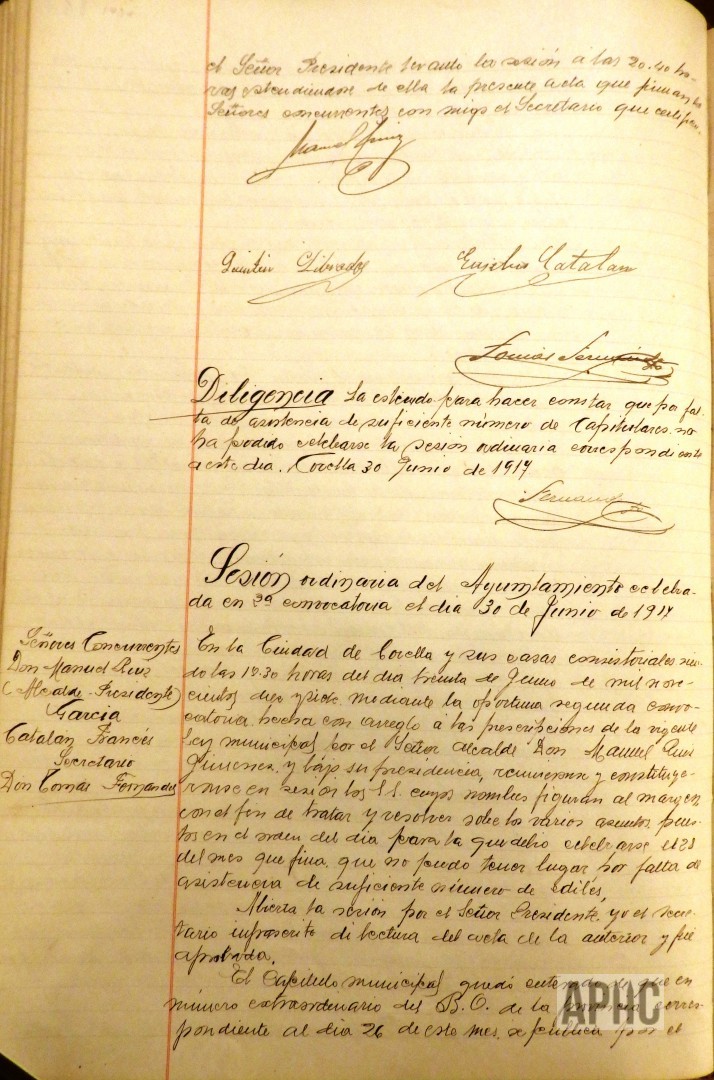 el Señor Presidente levantó la sesión á las 20.40 ho-
ras estendiendose de ella la presente acta que firman los
Señores concurrentes con migo el Secretario que certifico.
Manuel Ruiz
Quintin Librada
Eusebio Catalan
Tomás Fernandez
Diligencia La estiendo para hacer constar que por fal-
ta de asistencia de suficiente número de Capitulares no
ha podido celebrarse la sesión ordinaria correspondiente
a este dia. Corella 30 Junio de 1917
Fernandez
Sesión ordinaria del Ayuntamiento celebra-
da en convocatoria el dia 30 de Junio de 1917
Señores Concurrentes
Don Manuel Ruiz
(Alcalde-Presidente)
Garcia
Catalan Francés
Secretario
Don Tomás Fernandez
En la Ciudad de Corella y sus casas consistoriales sien-
do las horas del dia treinta de Junio de mil nove-
cientos diez y siete mediante la oportuna segunda convo-
catoria hecha con arreglo á las prescripciones de la vigente
Ley municipal por el Señor Alcalde Don Manuel Ruiz
Gimenez y bajo su presidencia, reunieronse y constituye-
ronse en sesión los S.S. cuyos nombres figuran al margen
con el fin de tratar y resolver sobre los varios asuntos pues-
tos en el orden del dia para la que debió celebrarse el 28
del mes que fina que no pudo tener lugar por falta de
asistencia de suficiente número de ediles.
Abierta la sesión por el Señor Presidente, yo el secre-
tario infrascrito di lectura del acta de la anterior y fué
aprobada.
El Capitulo municipal quedó enterado de que en
número extraordinario del B.O. de la provincia corres-
pondiente al dia 26 de este mes, se publica por el
APHC